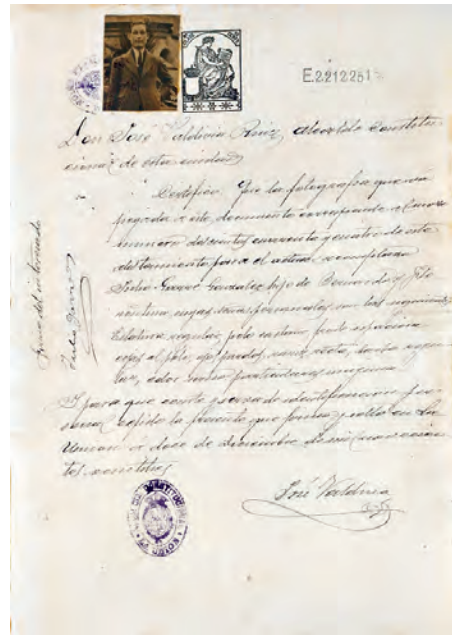 E.2.212.251
Don José Valdivia Ruiz, Alcalde Constitu-
cional de esta ciudad
Certifico: Que la fotografia que va
pegada a este documento corresponde al
numero doscientos cuarenta y cuatro de este
alistamiento para el actual reemplazo
Gonzalez hijo de Bernardo y
cuyas señas personales son las siguientes
Estatura regular, pelo castaño,
cejas al pelo, ojos pardos, nariz recta, barba regu-
lar, color particulares ninguna
Y para que conste y sirva de identificacion per-
sonal expido la presente que firmo y sello en La
Union a doce de Diciembre de mil novecien-
tos
José Valdivia
Firma del interesado